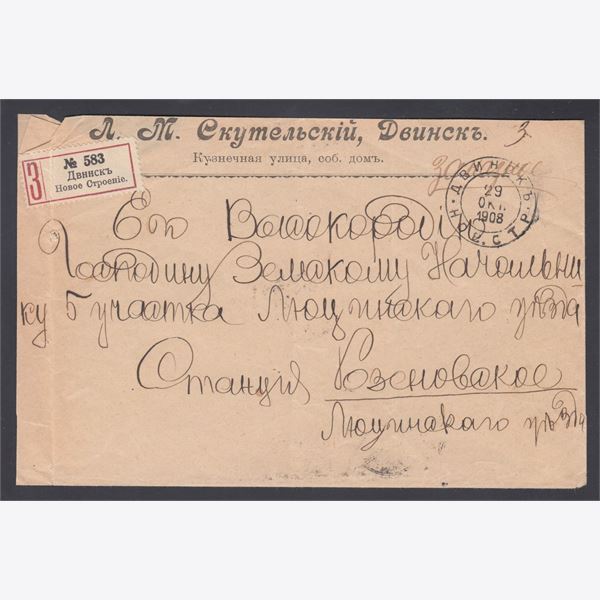 Л. М. Скутельскій, Двинскъ.
Кузнечная улица, соб. домъ.
3
З
№ 583
Двинскъ
Новое Строеніе.
заказное
ДВИНСКЪ
НОВ. СТР.
29
ОКТ.
1908
Его Высокородію
Господину Земскому Начальни
ку 5 участка Люцинскаго уѣзда
Станція Розеновское
Люцинскаго уѣзда